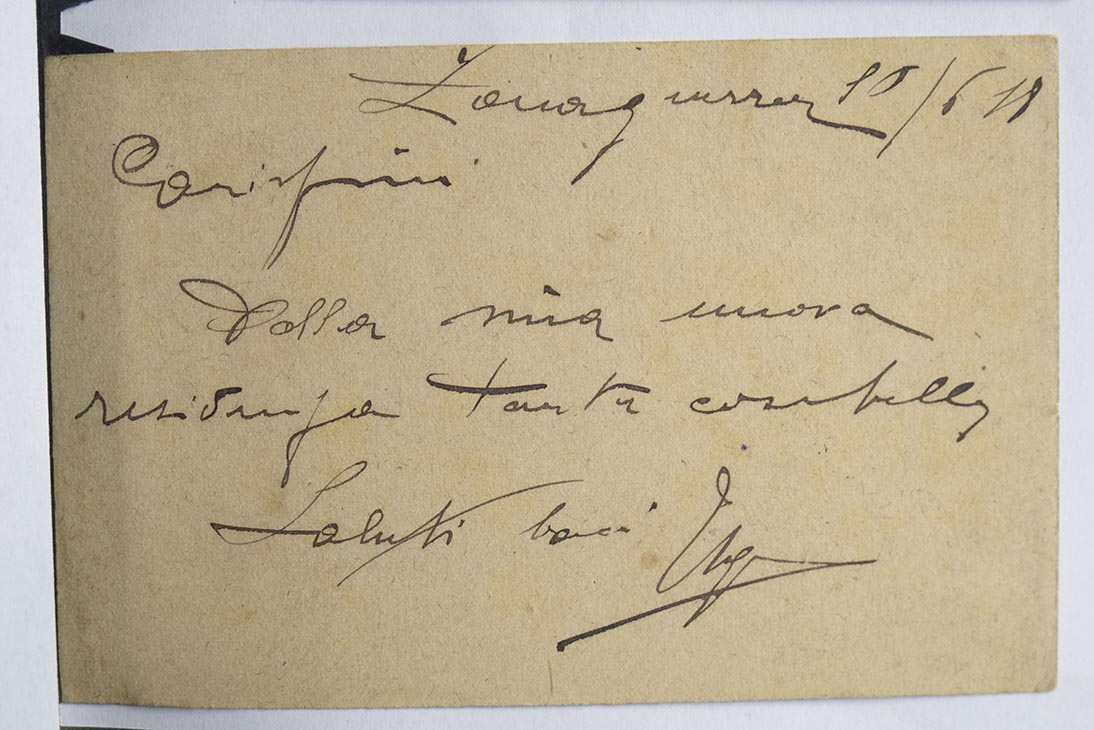 Zona guerra 10/6 18
Carissimi
Dalla mia nuova
residenza tante cose belle
Saluti baci Ugo